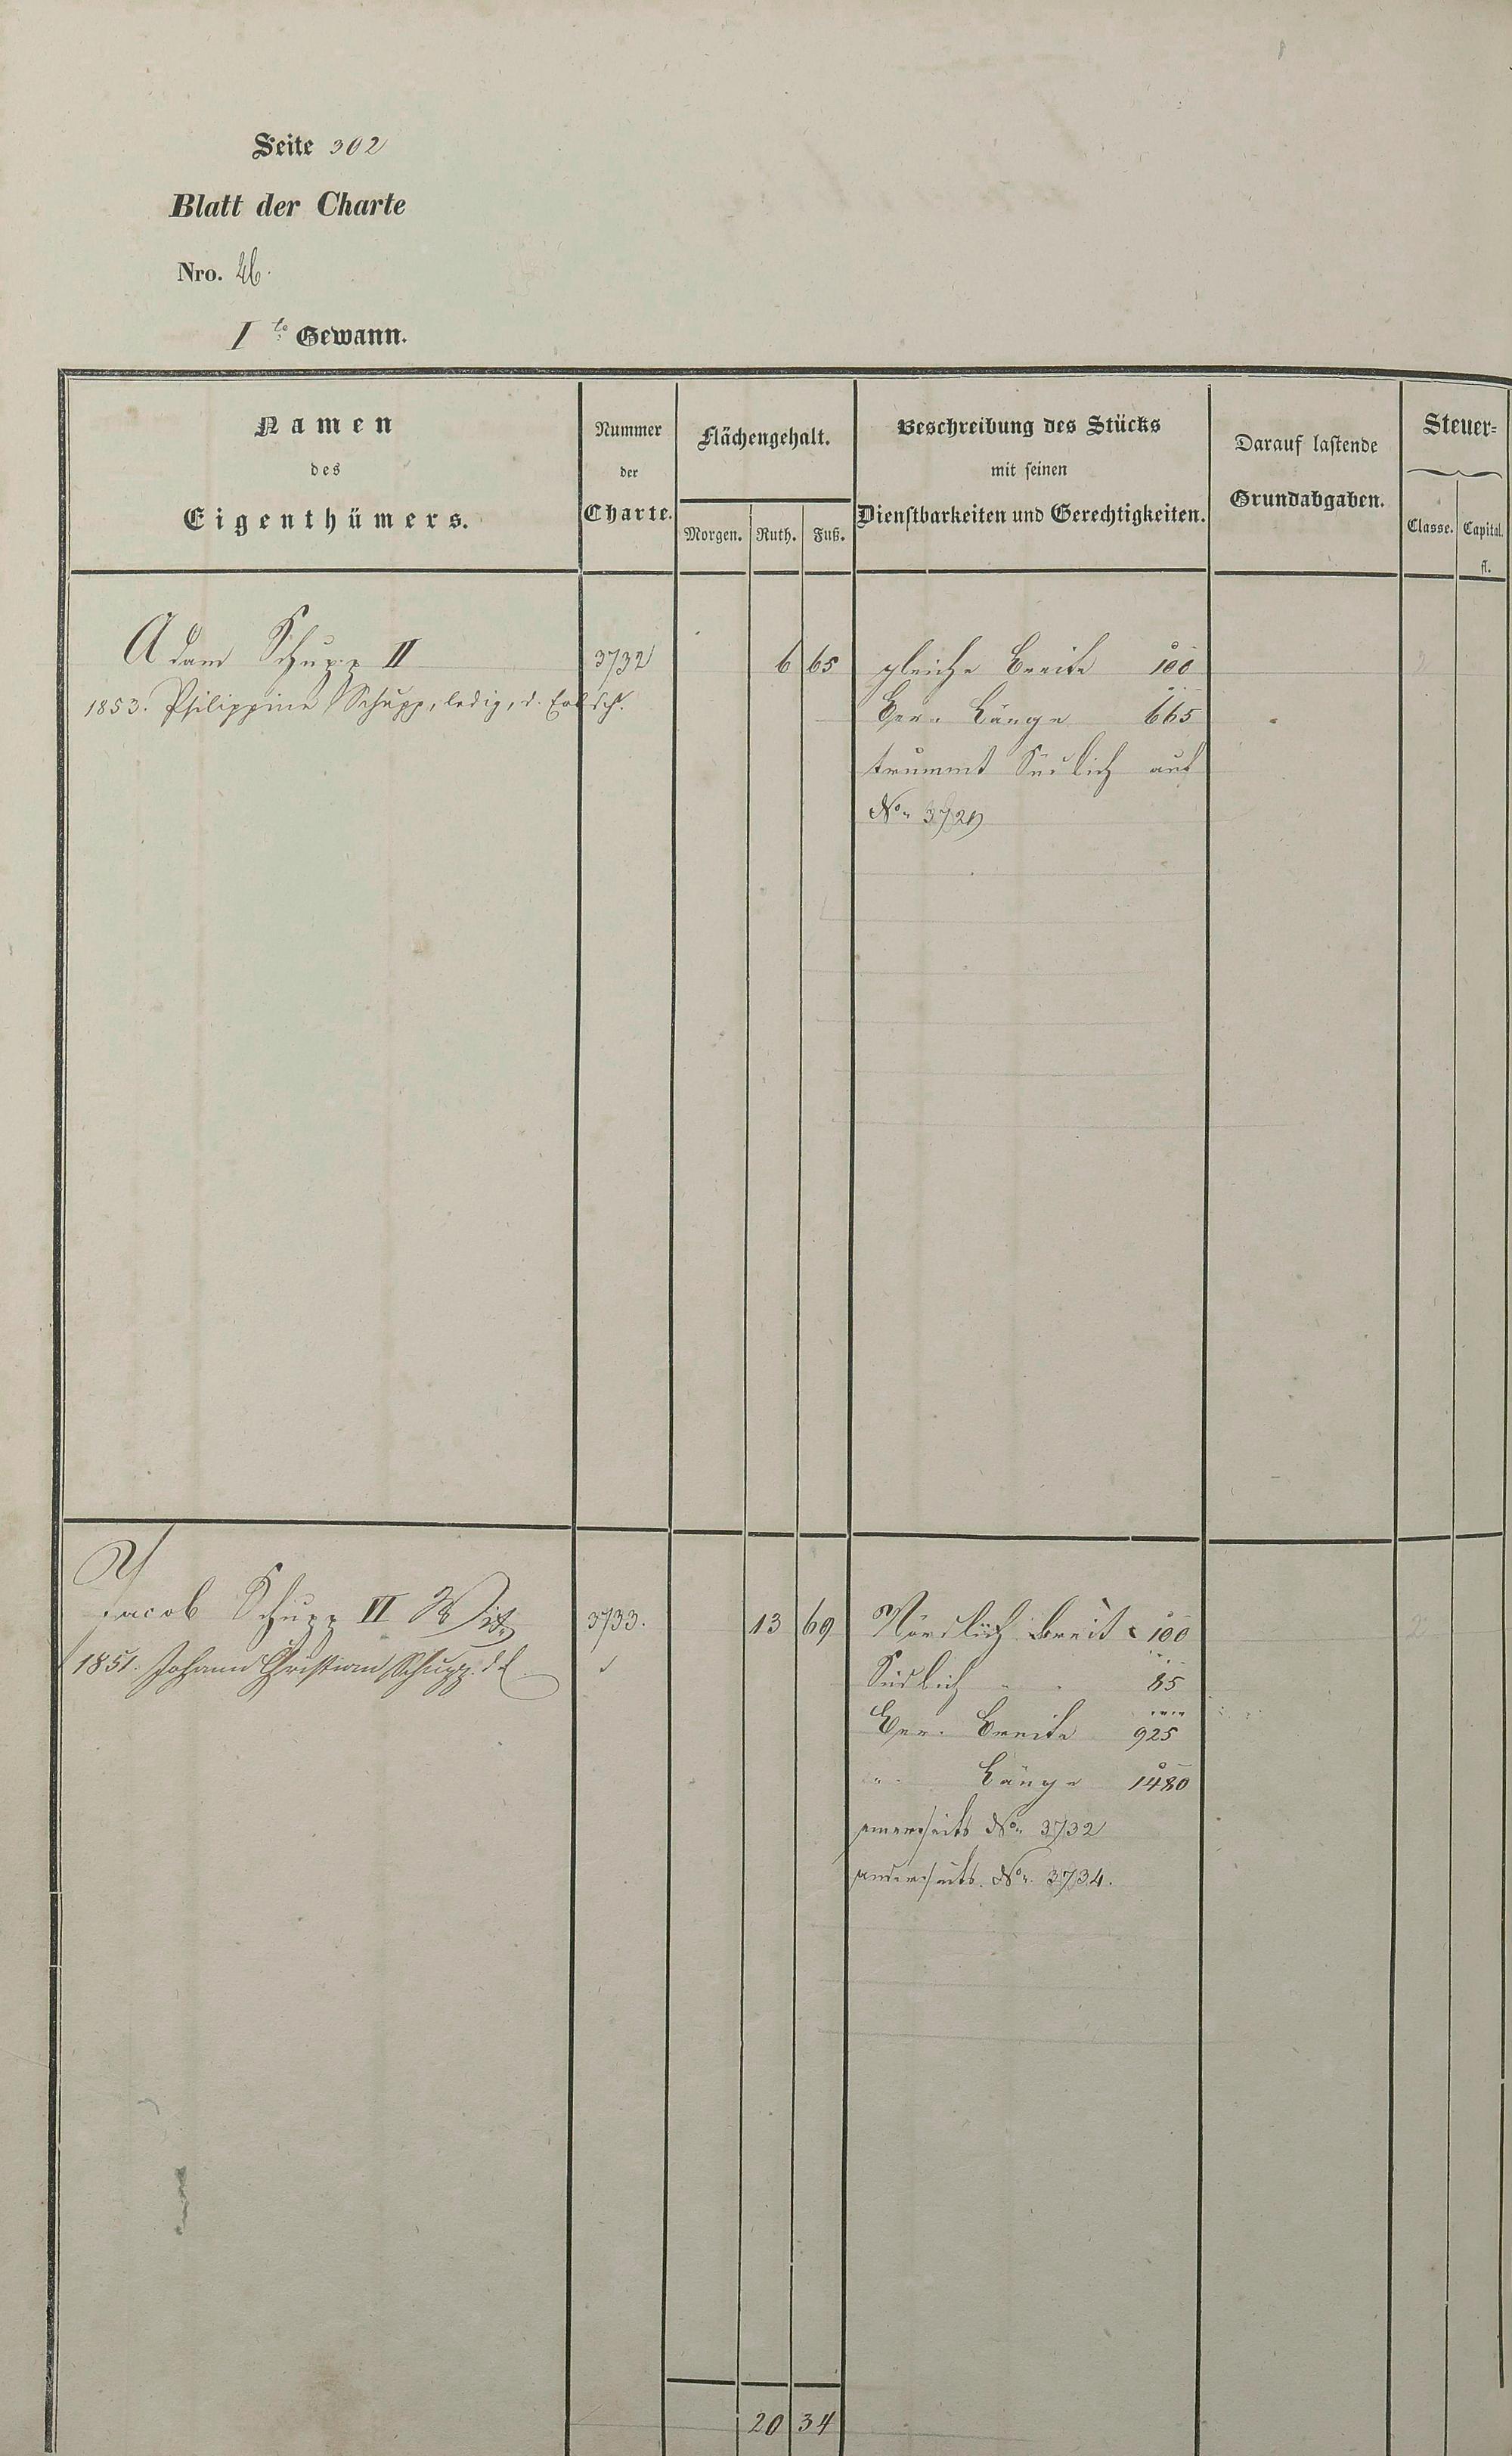 Seite 302
Blatt der Charte
Nro. 26.
I te Gewann.
Namen
des
Eigenthümers.
Nummer
der
Charte.
Flächengehalt.
Morgen. Ruth. Fuß.
Beschreibung des Stücks
mit seinen
Dienstbarkeiten und Gerechtigkeiten.
Darauf lastende
Grundabgaben.
Steuer-
Classe. Capital.
fl.
Adam Schupp II 3732 6 65 gleiche Breite 100 2
1853. Philippine Schupp, ledig, d. Erbsch. Länge 665
trummt Südlich auf
No. 3729
Jacob Schupp VI Wit. 3733. 13 69 Nördlich breit 100 2
1851. Johann Christian Schupp. Südlich 85
Breite 925
" Länge 1480
einerseits No. 3732
anderseits No. 3734.
20 34